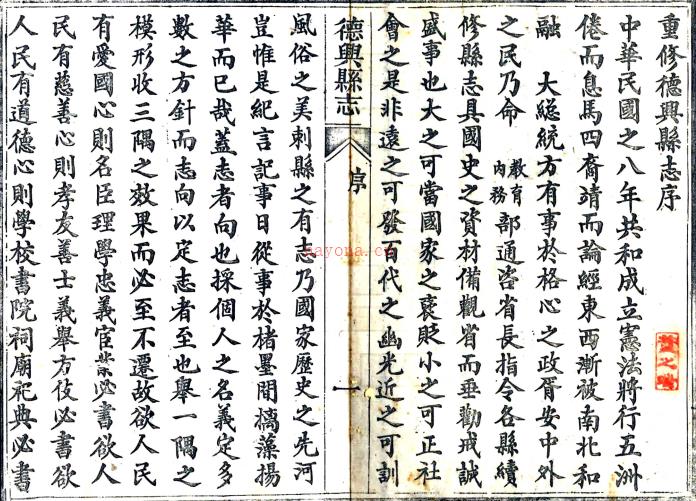 重修德興縣志序
中華民國之八年共和成立憲法將行五洲
倦而息馬四裔靖而論經東西漸被南北和
融　大總統方有事於格心之政胥安中外
之民乃命　教育內務部通咨省長指令各縣續
修縣志具國史之資材備觀省而垂勸戒誠
盛事也大之可當國家之褒貶小之可正社
會之是非遠之可發百代之幽光近之可訓
德興縣志
序
一
風俗之美刺縣之有志乃國家歷史之先河
豈惟是紀言記事日從事於楮墨間摛藻揚
華而已哉蓋志者向也採個人之名義定多
數之方針而志向以定志者至也舉一隅之
模形收三隅之效果而必至不遷故欲人民
有愛國心則名臣理學忠義宦業必書欲人
民有慈善心則孝友善士義舉方伎必書欲
人民有道德心則學校書院祠廟祀典必書
nayona.cn